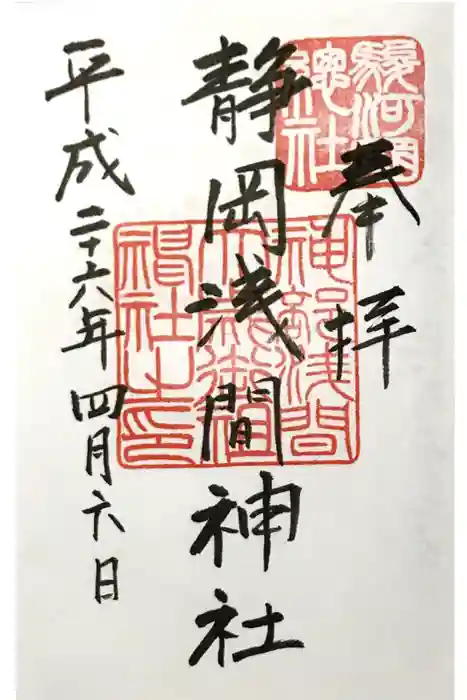 駿河國
總社
奉拝
神部淺間
大歳御祖
神社之印
静岡浅間神社
平成二十六年四月六日